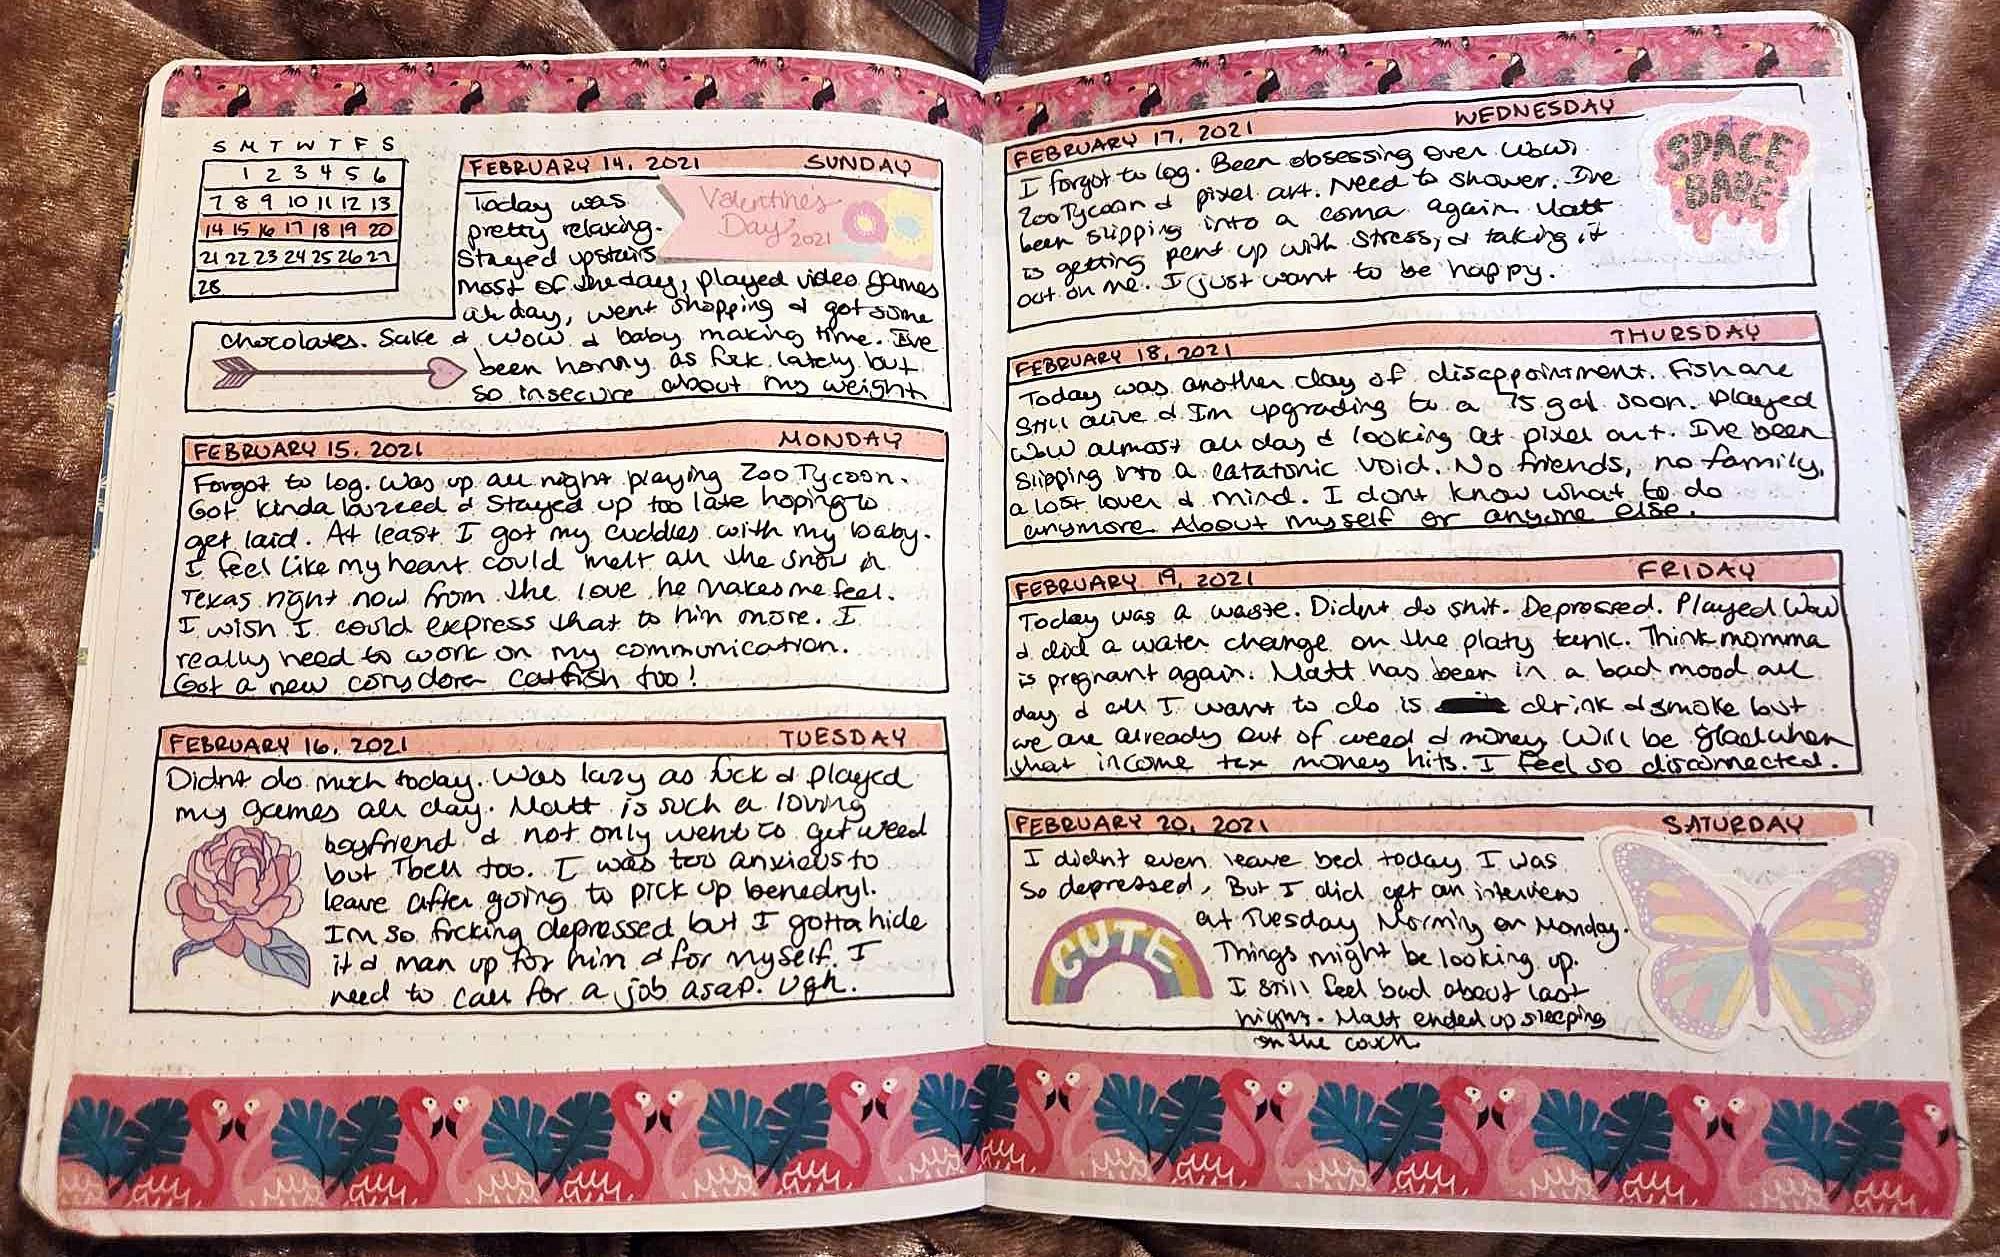 S M T W T F S
1 2 3 4 5 6
7 8 9 10 11 12 13
14 15 16 17 18 19 20
21 22 23 24 25 26 27
28
FEBRUARY 14, 2021 SUNDAY
Valentine's
Day 2021
Today was
pretty relaxing.
Stayed upstairs
most of the day, played video games
all day, went shopping & got some
chocolates. Sake & WoW & baby making time. I've
been horny as fuck lately but
so insecure about my weight
FEBRUARY 15, 2021 MONDAY
Forgot to log. Was up all night playing Zoo Tycoon.
Got kinda buzzed & stayed up too late hoping to
get laid. At least I got my cuddles with my baby.
I feel like my heart could melt all the snow in
Texas right now from the love he makes me feel.
I wish I could express that to him more. I
really need to work on my communication.
Got a new corydora catfish too!
FEBRUARY 16, 2021 TUESDAY
Didnt do much today. Was lazy as fuck & played
my games all day. Matt is such a loving
boyfriend & not only went to get weed
but Tbell too. I was too anxious to
leave after going to pick up benedryl.
Im so fucking depressed but I gotta hide
it & man up for him & for myself. I
need to call for a job asap. Ugh.
FEBRUARY 17, 2021 WEDNESDAY
SPACE
BABE
I forgot to log. Been obsessing over WoW,
Zoo Tycoon & pixel art. Need to shower. I've
been slipping into a coma again. Matt
is getting pent up with stress, & taking it
out on me. I just want to be happy.
FEBRUARY 18, 2021 THURSDAY
Today was another day of disappointment. Fish are
still alive & Im upgrading to a 75 gal soon. Played
WoW almost all day & looking at pixel art. I've been
slipping into a catatonic void. No friends, no family,
a lost lover & mind. I dont know what to do
anymore. About myself or anyone else.
FEBRUARY 19, 2021 FRIDAY
Today was a waste. Didnt do shit. Depressed. Played WoW
& did a water change on the platy tank. Think momma
is pregnant again. Matt has been in a bad mood all
day & all I want to do is drink & smoke but
we are already out of weed & money. Will be glad when
that income tax money hits. I feel so disconnected.
FEBRUARY 20, 2021 SATURDAY
I didnt even leave bed today I was
so depressed. But I did get an interview
at Tuesday Morning on Monday.
Things might be looking up.
I still feel bad about last
night. Matt ended up sleeping
on the couch.
CUTE